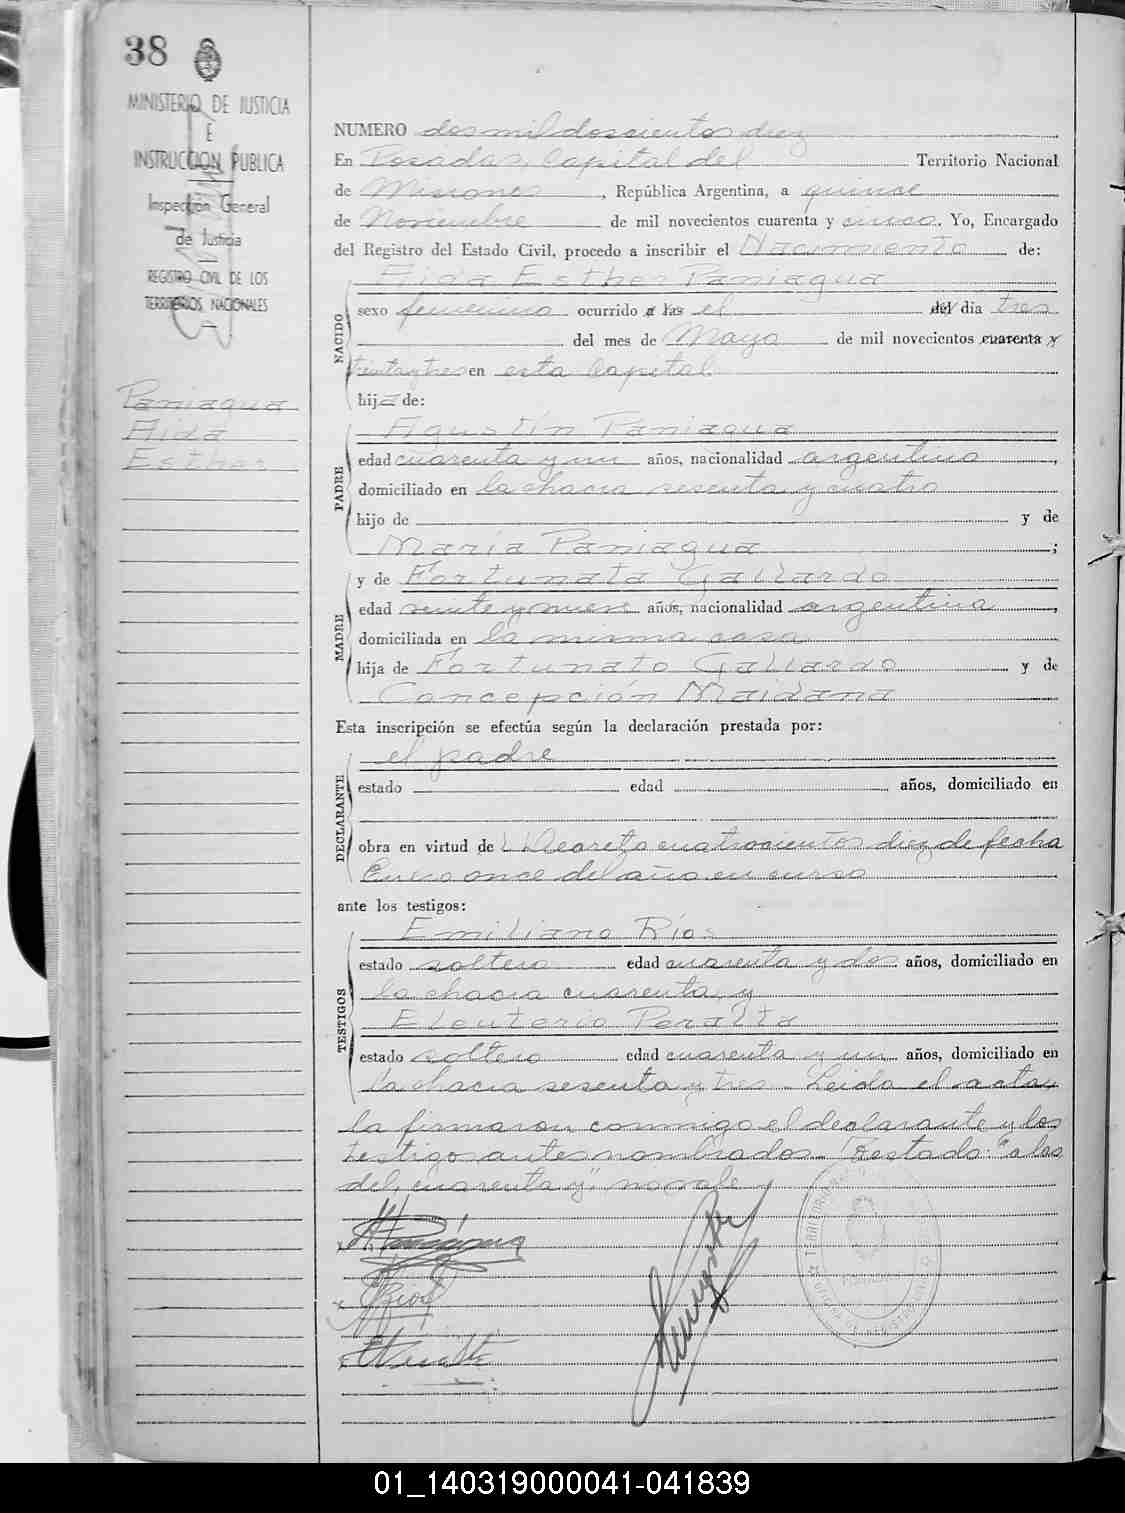 38
MINISTERIO DE JUSTICIA
E
INSTRUCCION PUBLICA
Inspección General
de Justicia
REGISTRO CIVIL DE LOS
TERRITORIOS NACIONALES
Paniagua
Aida
Esther
NUMERO dos mil doscientos diez
En Posadas, Capital del Territorio Nacional
de Misiones, República Argentina, a quince
de Noviembre de mil novecientos cuarenta y cinco. Yo, Encargado
del Registro del Estado Civil, procedo a inscribir el Nacimiento de:
NACIDO
Aida Esther Paniagua
sexo femenino ocurrido a las el del día tres
del mes de Mayo de mil novecientos cuarenta y
treinta y tres en esta Capital
hija de:
PADRE
Agustín Paniagua
edad cuarenta y un años, nacionalidad argentino,
domiciliado en la chacra sesenta y cuatro
hijo de y de
María Paniagua;
MADRE
y de Fortunata Gallardo
edad veinte y nueve años, nacionalidad argentina,
domiciliada en la misma casa
hija de Fortunato Gallardo y de
Concepción Maidana
Esta inscripción se efectúa según la declaración prestada por:
DECLARANTE
el padre
estado edad años, domiciliado en
obra en virtud de Decreto cuatrocientos diez de fecha
Enero once del año en curso
ante los testigos:
TESTIGOS
Emiliano Ríos
estado soltero edad cuarenta y dos años, domiciliado en
la chacra cuarenta, y
Eleuterio Peralta
estado soltero edad cuarenta y un años, domiciliado en
la chacra sesenta y tres. Leída el acta,
la firmaron conmigo el declarante y los
testigos antes nombrados. Testado: "a las
del, cuarenta y" no vale
01_140319000041-041839